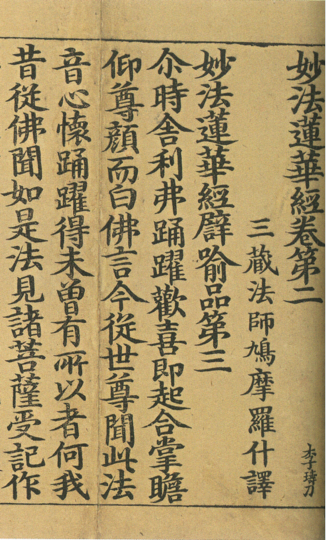 妙法蓮華經卷第二
三藏法師鳩摩羅什譯
李瑋刀
妙法蓮華經譬喻品第三
尒時舍利弗踊躍歡喜即起合掌瞻
仰尊顏而白佛言今從世尊聞此法
音心懷踊躍得未曾有所以者何我
昔從佛聞如是法見諸菩薩受記作